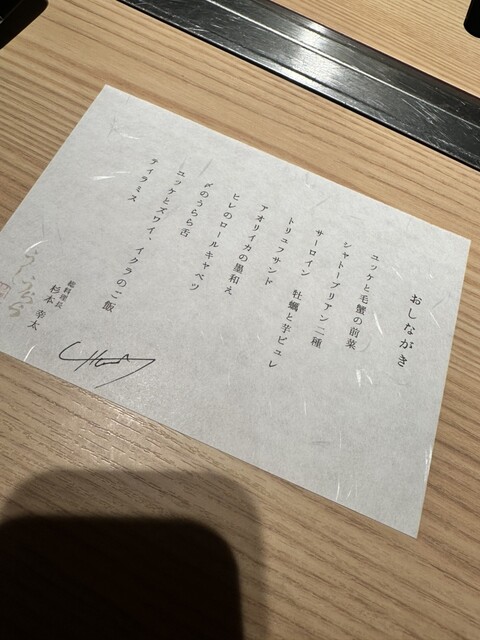 おしながき
ユッケと毛蟹の前菜
シャトーブリアン二種
サーロイン 牡蠣と芋ピュレ
トリュフサンド
アオリイカの墨和え
ヒレのロールキャベツ
〆のうらら舌
ユッケとズワイ、イクラのご飯
テイラミス
総料理長
杉本 幸太